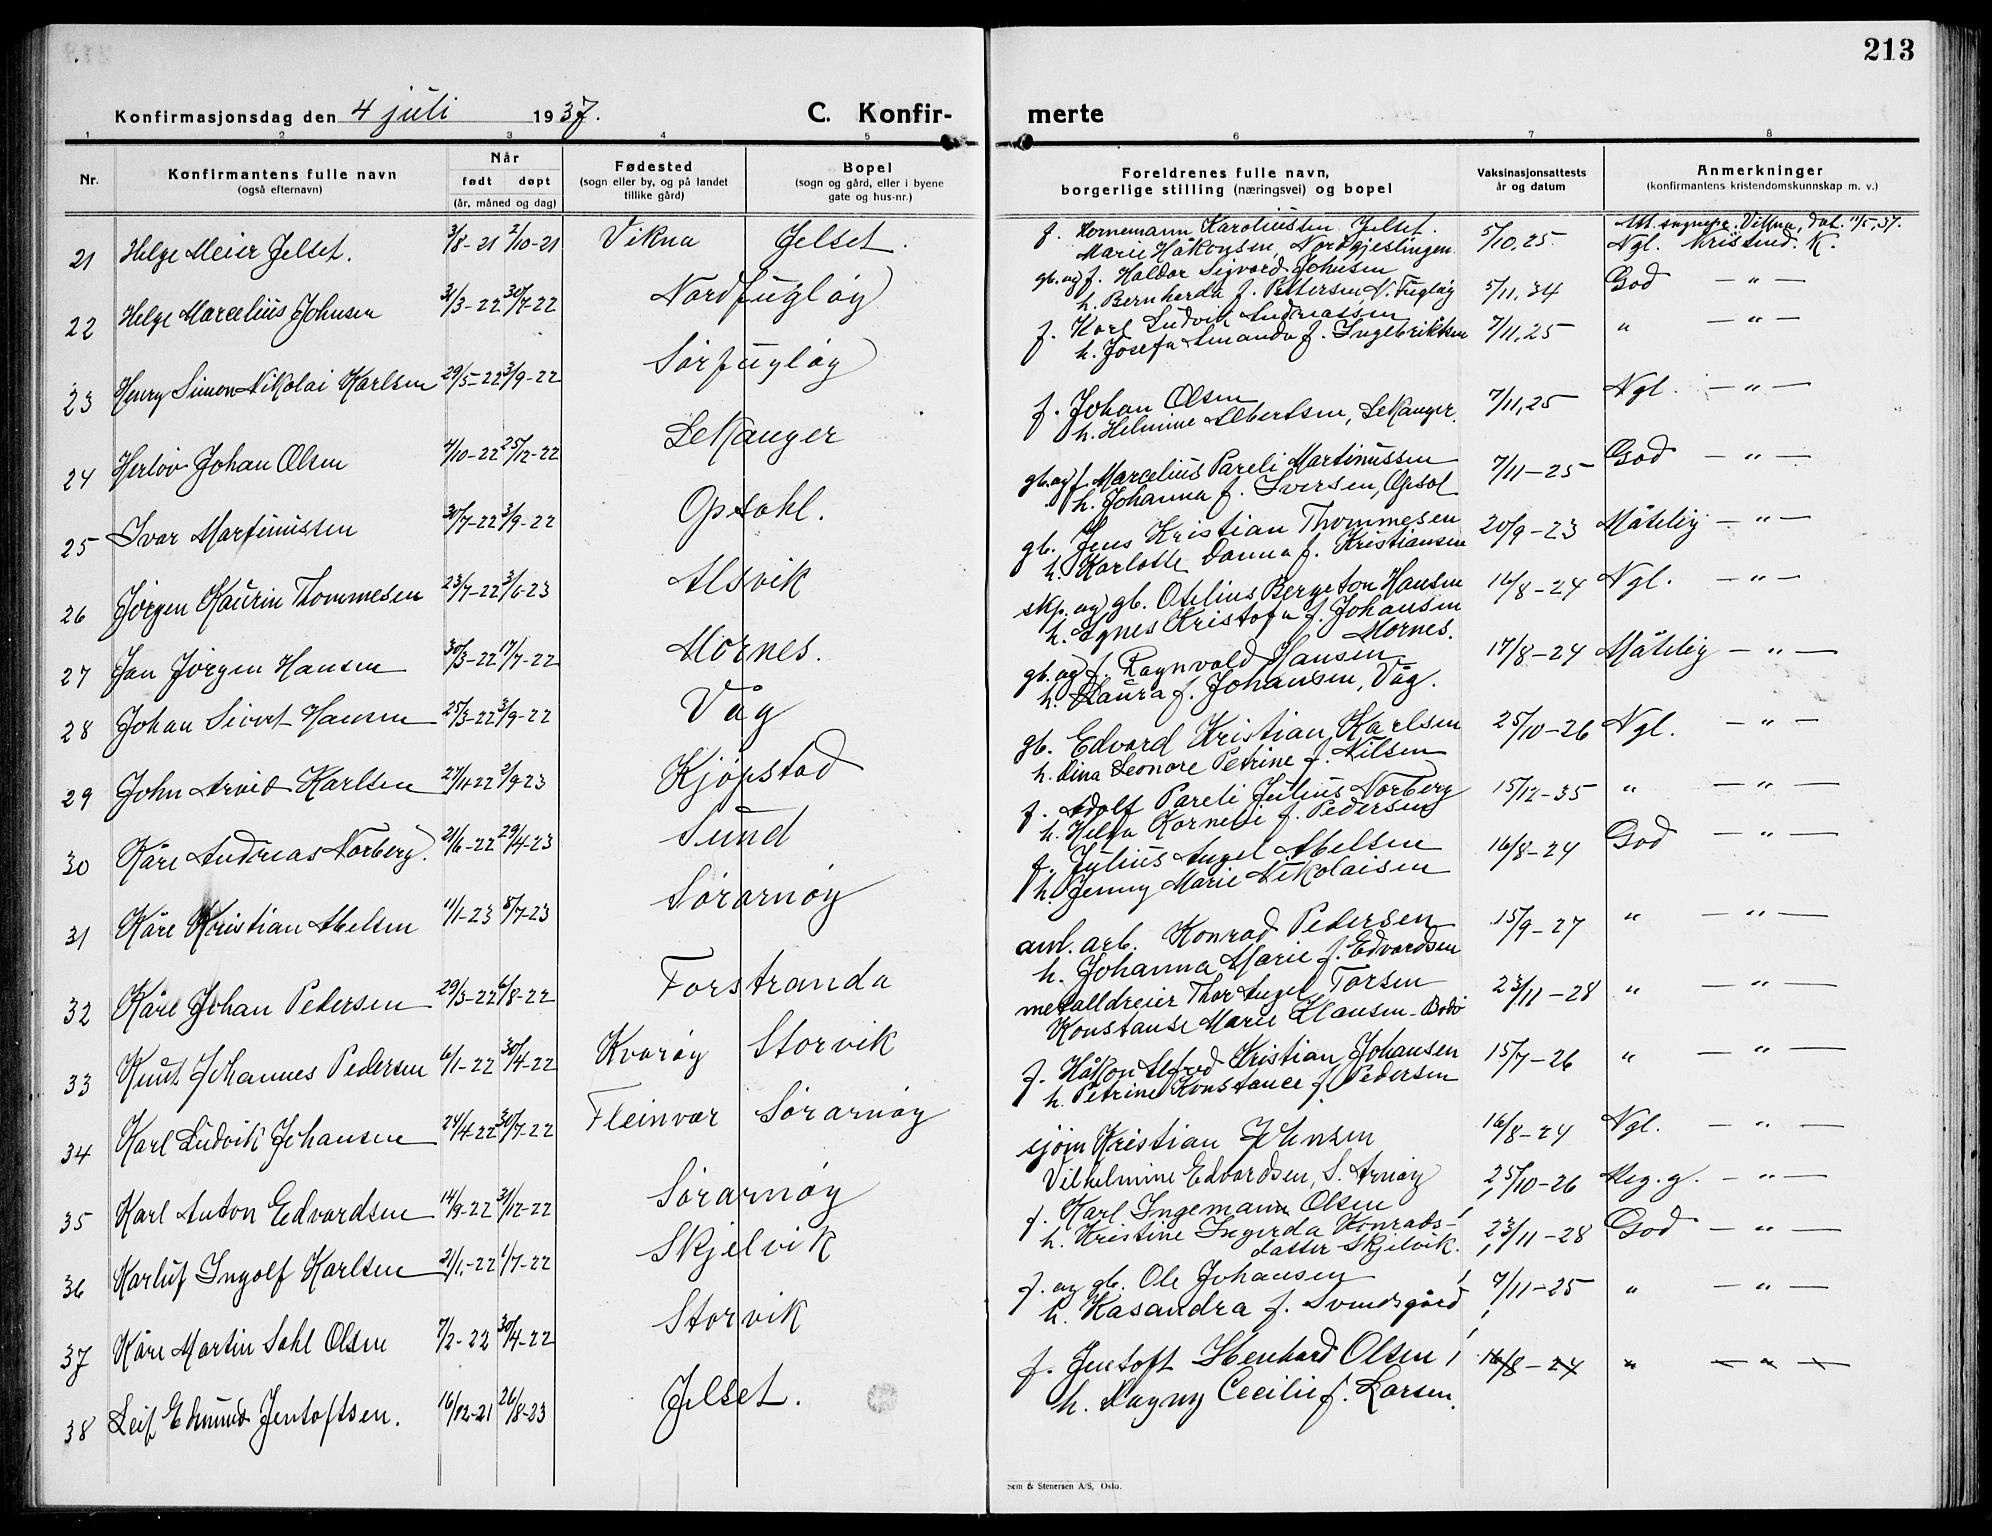 213
Konfirmasjonsdag den 4 juli 1937. C. Konfir-
merte
1 2 3 4 5 6 7 8
Nr. Konfirmantens fulle navn (også efternavn) Når født døpt (år, måned og dag) Fødested (sogn eller by, og på landet tillike gård) Bopel (sogn og gård, eller i byene gate og hus-nr.)
Foreldrenes fulle navn, borgerlige stilling (næringsvei) og bopel Vaksinasjonsattests år og datum Anmerkninger (konfirmantens kristendomskunnskap m. v.)
21 Helge Meier Jelset. 3/8-21 2/10-21 Vikna Jelset.
f. Hornemann Karoliussen Jelset. 5/10,25 Att. sognepr. Vikna, dat. 11/5,37.
Marie Håkonsen, Nordgjeslingen Ngl. Kristend. K.
22 Helge Marcelius Johnsen 31/3-22 30/7-22 Nordfugløy
gb. og f. Haldor Sigvard Johnsen 5/11,34 God — " —
h. Bernharda f. Pettersen N. Fugløy
23 Henry Simon Nikolai Karlsen 29/5-22 3/9-22 Sørfugløy
f. Karl Ludvik Andreassen 7/11,25 " — " —
h. Josefa Amanda f. Ingebriktsen
24 Herlov Johan Olsen 4/10-22 25/12-22 Lekanger
f. Johan Olsen 7/11,25 Ngl. — " —
h. Helmine Albertsen, Lekanger.
25 Ivar Martinussen 30/7-22 3/9-22 Opsahl.
gb. og f. Marcelius Pareli Martinussen 7/11-25 God — " —
h. Johanna f. Iversen, Opsal
26 Jørgen Kaurin Thommesen 23/7-22 3/6-23 Alsvik
gb. Jens Kristian Thommesen 20/9-23 Måtelig — " —
h. Karlotte Danna f. Kristiansen
27 Jan Jørgen Hansen 30/3-22 17/7-22 Mornes.
skp. og gb. Otelius Bergeton Hansen 16/8-24 Ngl. — " —
h. Agnes Kristofa f. Johansen
Mornes.
28 Johan Sivert Hansen 25/3-22 3/9-22 Våg
gb. og f. Ragnvald Hansen 17/8-24 Måtelig — " —
h. Laura f. Johansen, Våg.
29 John Arvid Karlsen 27/11-22 2/9-23 Kjøpstad
gb. Edvard Kristian Karlsen 25/10-26 Ngl. — " —
h. Dina Leonore Petrine f. Nilsen
30 Kåre Andreas Norberg. 21/6-22 29/4-23 Sund
f. Adolf Pareli Julius Norberg 15/12-35 " — " —
h. Helga Kornelie f. Pedersen
31 Kåre Kristian Abelsen 11/1-23 8/7-23 Sørarnøy
f. Julius Angel Abelsen 16/8-24 God — " —
h. Jenny Marie Nikolaisen
32 Kåre Johan Pedersen 29/3-22 6/8-22 Forstranda
anl. arb. Konrad Pedersen 15/9-27 " — " —
h. Johanna Marie f. Edvardsen
33 Knut Johannes Pedersen 6/1-22 30/4-22 Kvarøy Storvik
metalldreier Thor Angel Torsen 23/11-28 " — " —
Konstanse Marie Hansen - Bodø
34 Karl Ludvik Johansen 24/4-22 30/7-22 Fleinvær Sørarnøy
f. Håkon Alfred Kristian Johansen 15/7-26 " — " —
h. Petrine Konstance f. Pedersen
35 Karl Anton Edvardsen 14/9-22 3/12-22 Sørarnøy
sjøm Kristian Johnsen 16/8-24 Ngl. — " —
Vilhelmine Edvardsen, S. Arnøy
36 Karluf Ingolf Karlsen 21/1-22 1/7-22 Skjelvik
f. Karl Ingemann Olsen 25/10-26 Meg. g. — " —
h. Kristine Ingerda Konrads-
datter Skjelvik. 23/11-28 God — " —
37 Kåre Martin Dahl Olsen 7/2-22 30/4-22 Storvik
f. og gb. Ole Johansen 7/11-25 " — " —
h. Kasandra f. Svendsgård
38 Leif Edmund Jentoftsen. 16/12-21 26/8-23 Jelset.
f. Jentoft Ebenhard Olsen 16/8-24 " — " —
h. Dagny Cecilie f. Larsen.
Sem & Stenersen A/S, Oslo.